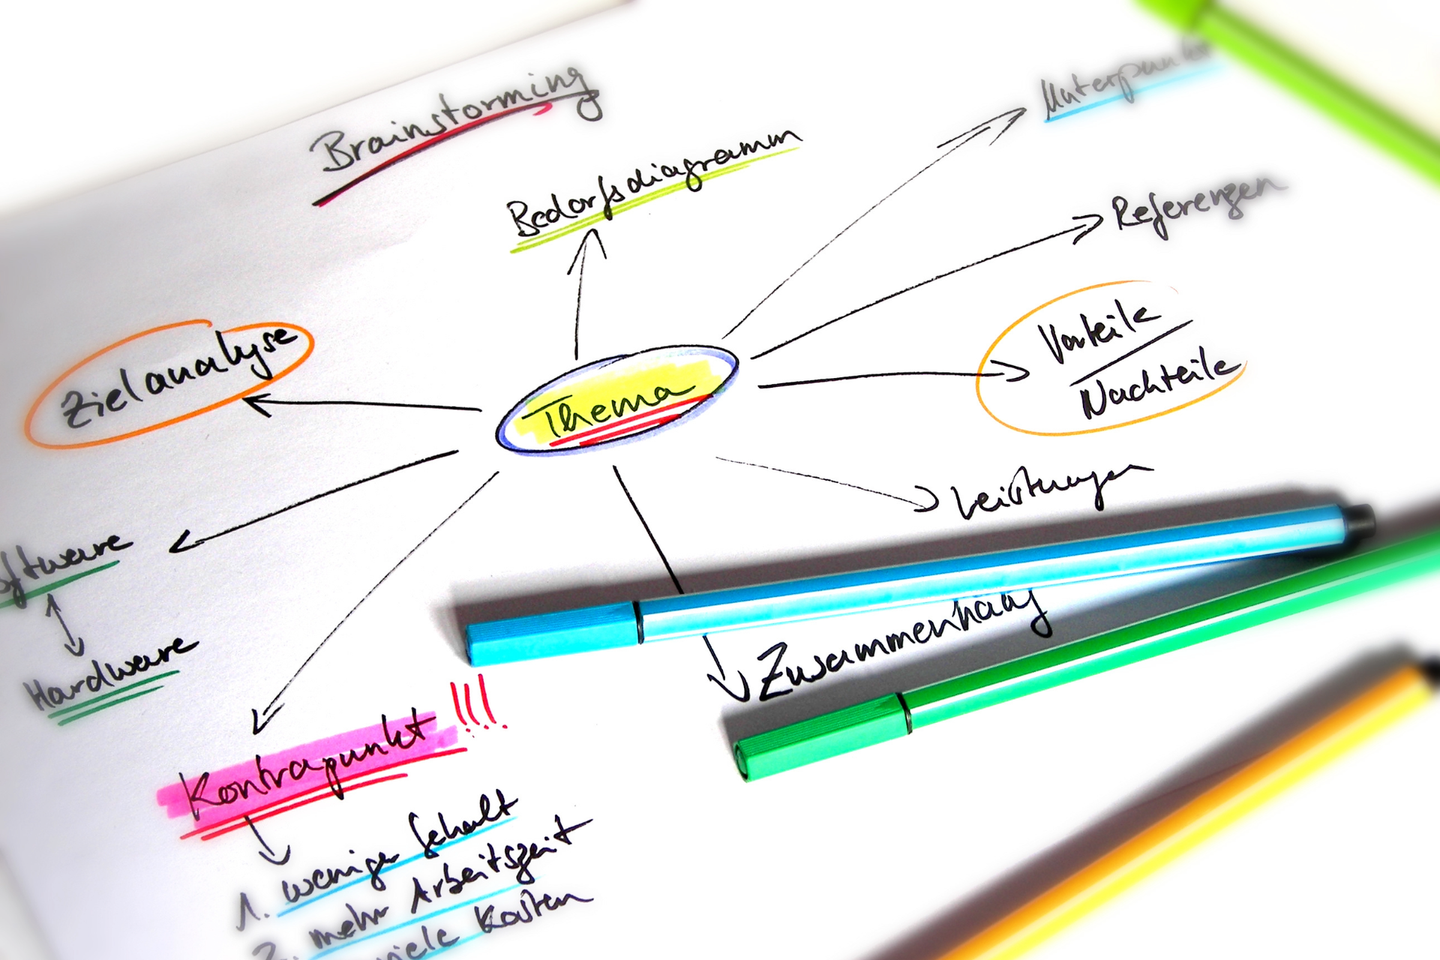 Brainstorming
Bedarfsdiagramm
Unterpunkte
Referenzen
Zielanalyse
Vorteile
Nachteile
Thema
Leistungen
Software
Hardware
Zusammenhang
Kontrapunkt !!!!
1. weniger Gehalt
2. mehr Arbeitszeit
viele Kosten